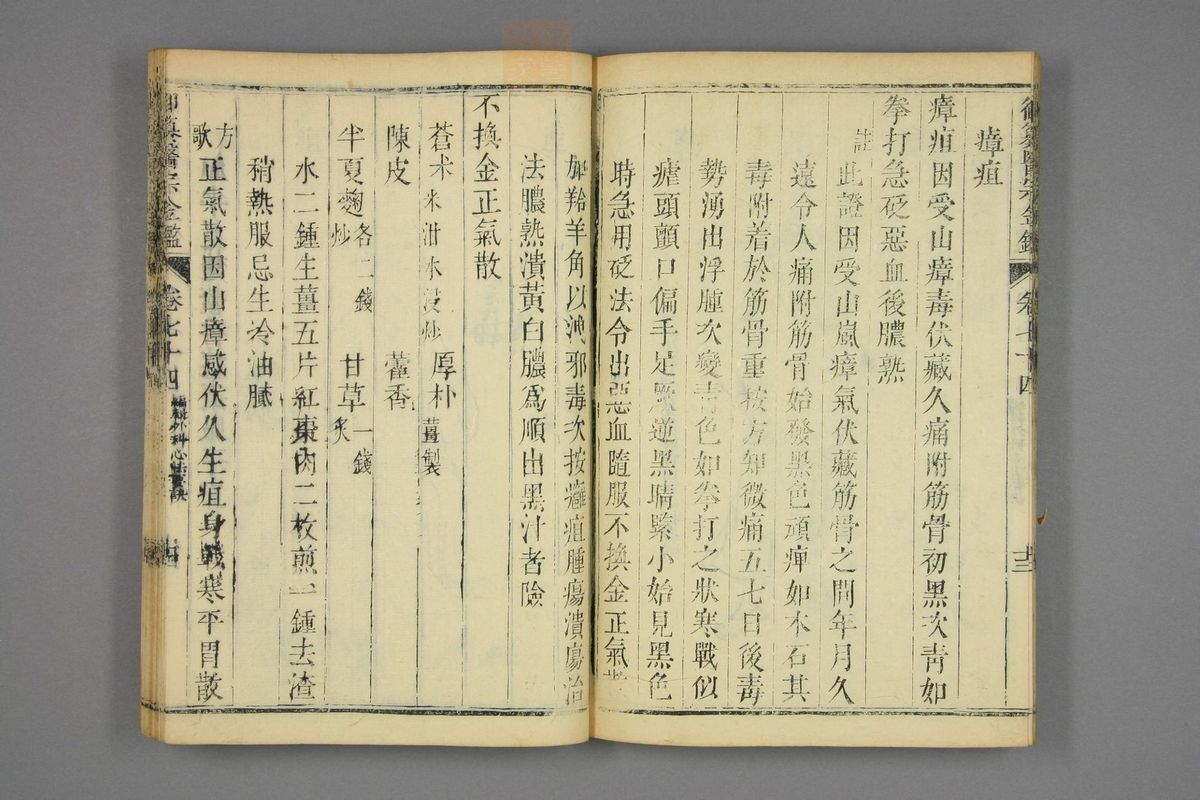 御纂醫宗金鑑 卷七十四
瘴疽
瘴疽因受山瘴毒伏藏久痛附筋骨初黑次青如
拳打急砭惡血後膿熟
註
此證因受山嵐瘴氣伏藏筋骨之間年月久
遠令人痛附筋骨始發黑色頑痺如木石其
毒附着於筋骨重按方知微痛五七日後毒
勢湧出浮腫次變青色如拳打之狀寒戰似
瘧頭顫口偏手足厥逆黑睛緊小始見黑色
時急用砭法令出惡血隨服不換金正氣散
加羚羊角以洩邪毒次按癰疽腫瘍潰瘍治
法膿熟潰黃白膿爲順出黑汁者險
不換金正氣散
蒼朮 米泔水浸炒 厚朴 薑製
陳皮 藿香
半夏麯 炒 各二錢 甘草 炙 一錢
水二鍾生薑五片紅棗肉二枚煎一鍾去渣
稍熱服忌生冷油膩
方歌 正氣散因山瘴感伏久生疽身戰寒平胃散
御纂醫宗金鑑 卷七十四 編輯外科心法要訣